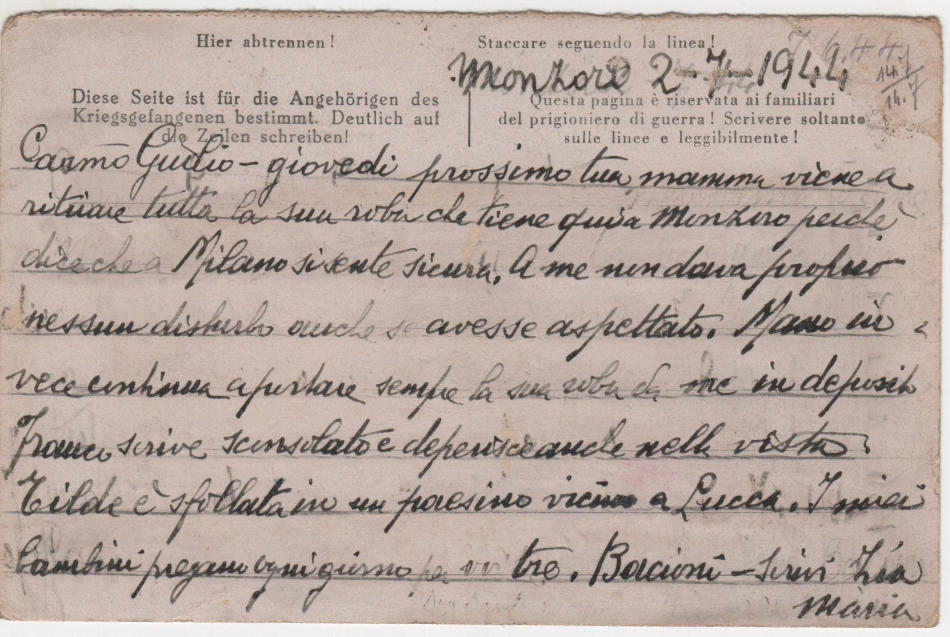 Hier abtrennen!
Staccare seguendo la linea!
7.6.44
Monzoro 2-7-1944
14.7
14.7
Diese Seite ist für die Angehörigen des
Kriegsgefangenen bestimmt. Deutlich auf
die Zeilen schreiben!
Questa pagina è riservata ai familiari
del prigioniero di guerra! Scrivere soltanto
sulle linee e leggibilmente!
Carmo Guilio - giovedi prossimo tua mamma viene a
ritirare tutta la sua roba che tiene qui a Monzoro perchè
dice che a Milano si sente sicura. A me non dava proprio
nessun disturbo anche se avesse aspettato. in
vece continua a portare sempre la sua roba da me in deposito
Franco scrive sconsolato e deperisce anche nella vista.
Tilde è sfollata in un paesino vicino a Lucca. I miei
bambini pregano ogni giorno per voi tre. Bacioni - scrivi Zia
Maria